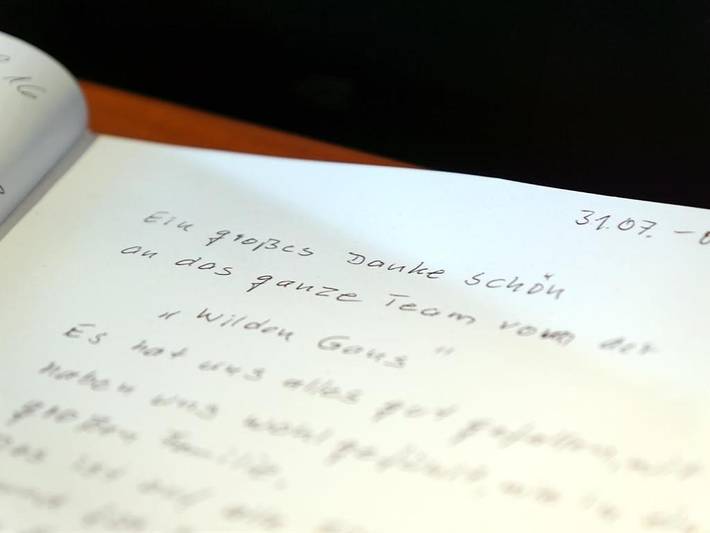 16
31.07. -
Ein großes Danke schön
an das ganze Team vom der
" Wilden Gans "
Es hat uns alles gut gefallen, wir
haben uns wohl gefühlt, wie in einer
großen Familie.
Das ist auf